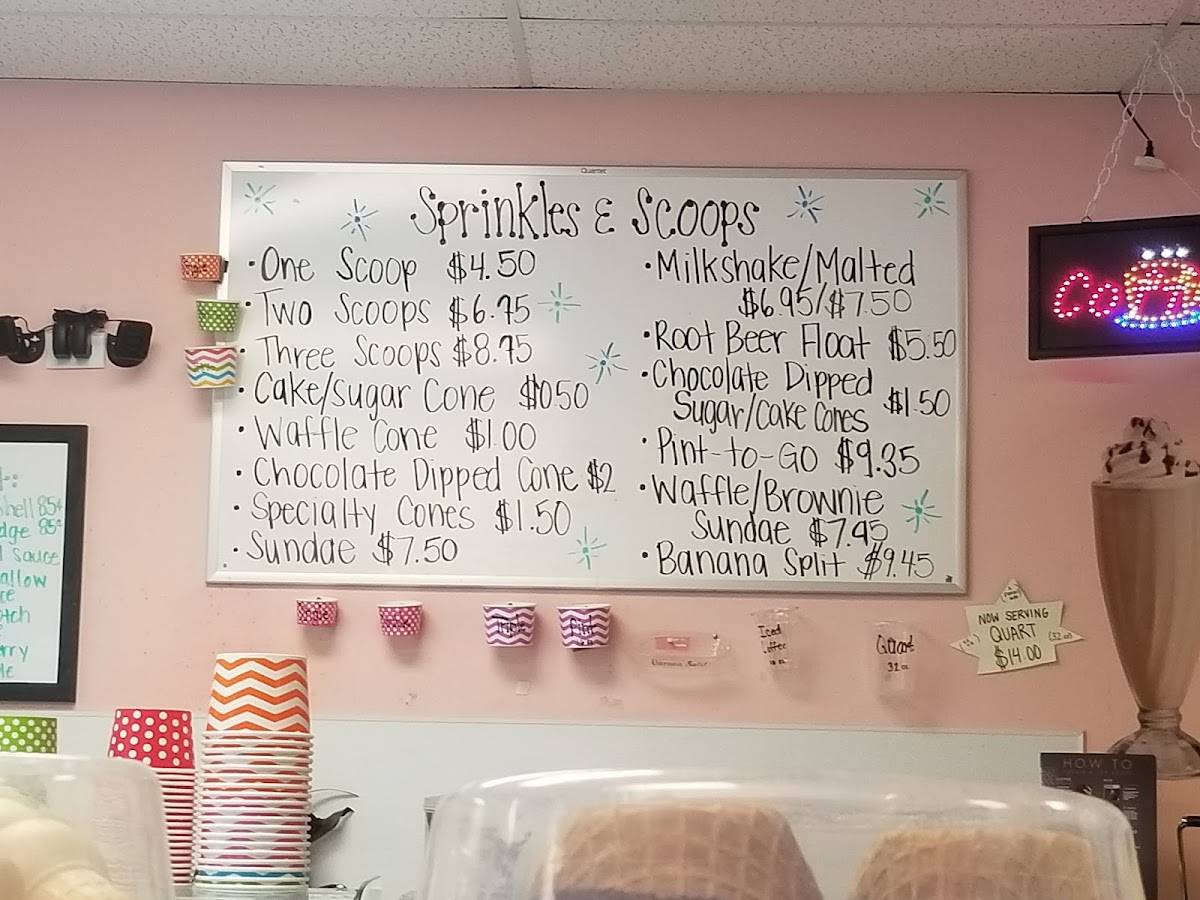 Quartet
Sprinkles & Scoops
• One Scoop $4.50
• Two Scoops $6.75
• Three Scoops $8.75
• Cake/Sugar Cone $0.50
• Waffle Cone $1.00
• Chocolate Dipped Cone $2
• Specialty Cones $1.50
• Sundae $7.50
• Milkshake/Malted
$6.95/$7.50
• Root Beer Float $5.50
• Chocolate Dipped
Sugar/Cake Cones $1.50
• Pint-to-Go $9.35
• Waffle/Brownie
Sundae $7.95
• Banana Split $9.45
hell 85¢
dge 85¢
Sauce
allow
otch
rry
Triple
Pint
Iced
Coffee
Quart
32 oz
NOW SERVING
QUART (32oz)
$14.00
HOW TO